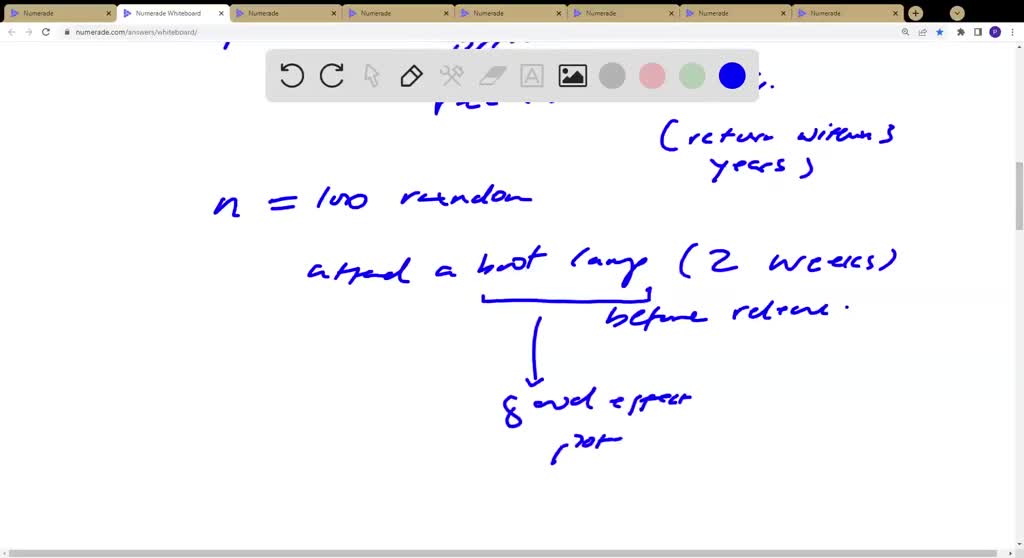 Numerade Numerade Whiteboard Numerade Numerade Numerade Numerade Numerade Numerade
numerade.com/answers/whiteboard/
(return within 3
years)
n = 100 random
attend a boot camp (2 weeks)
before release.
good effect